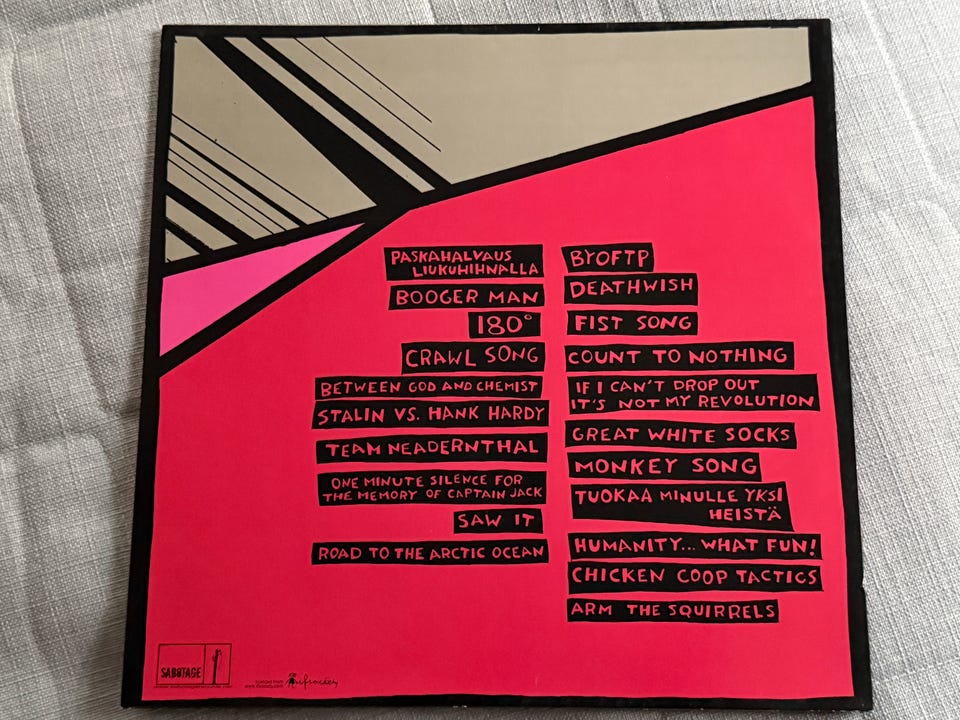 PASKAHALVAUS
LIUKUHIHNALLA
BOOGER MAN
180°
CRAWL SONG
BETWEEN GOD AND CHEMIST
STALIN VS. HANK HARDY
TEAM NEADERNTHAL
ONE MINUTE SILENCE FOR
THE MEMORY OF CAPTAIN JACK
SAW IT
ROAD TO THE ARCTIC OCEAN
BYOFTP
DEATHWISH
FIST SONG
COUNT TO NOTHING
IF I CAN'T DROP OUT
IT'S NOT MY REVOLUTION
GREAT WHITE SOCKS
MONKEY SONG
TUOKAA MINULLE YKSI
HEISTÄ
HUMANITY... WHAT FUN!
CHICKEN COOP TACTICS
ARM THE SQUIRRELS
SABOTAGE
licenced from